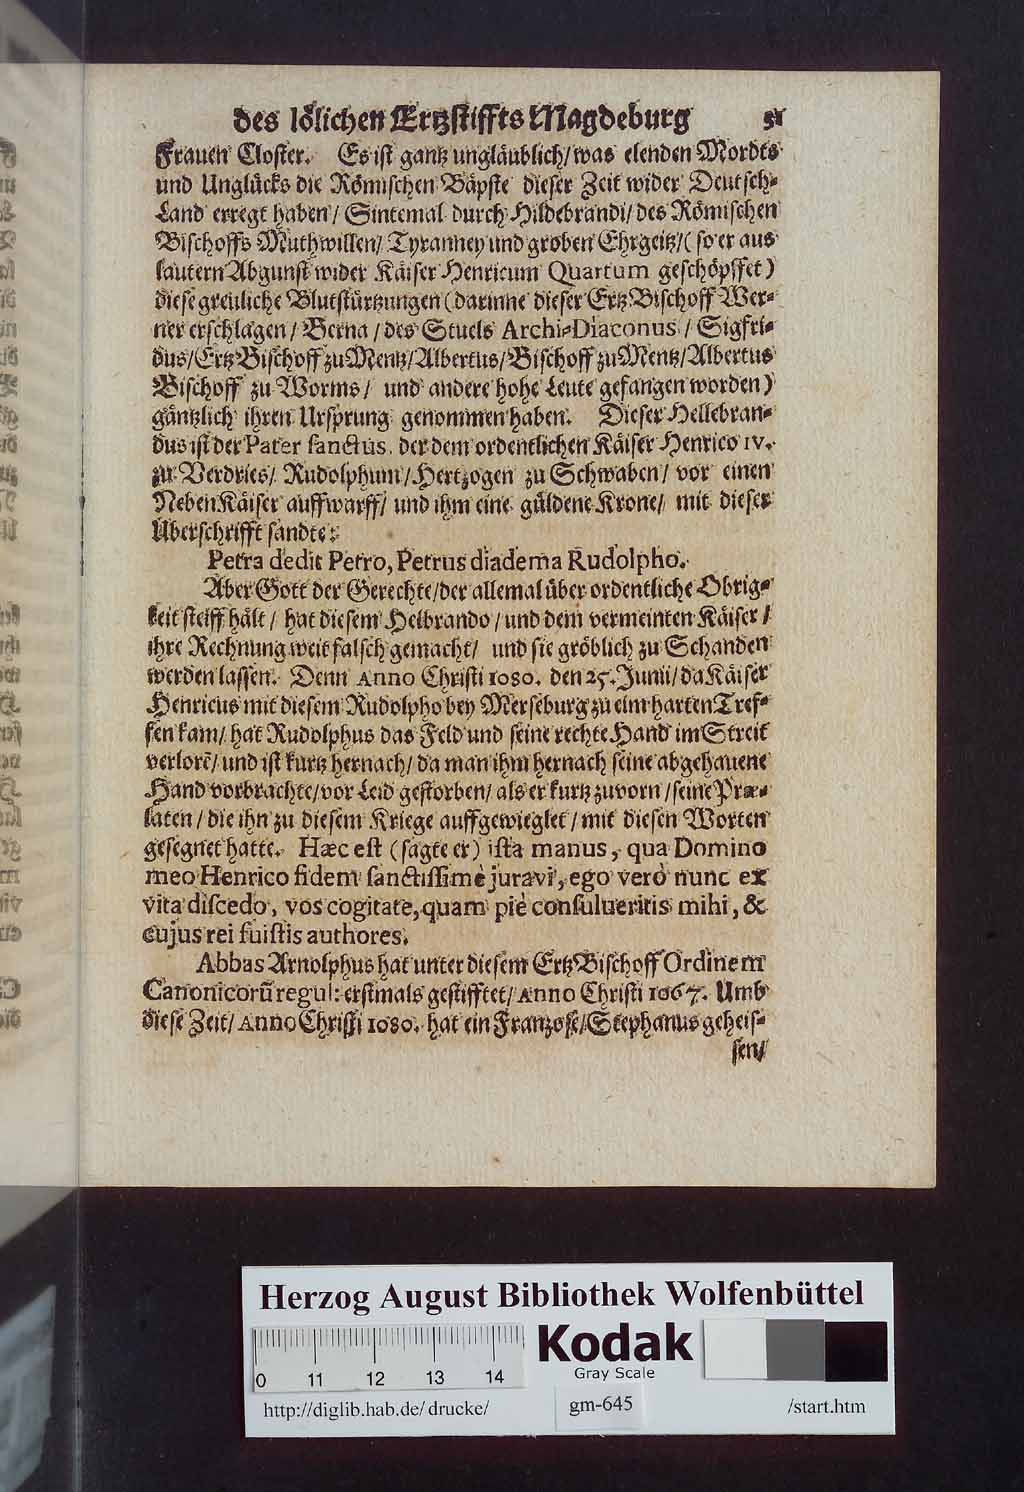 des lölichen Ertzstiffts Magdeburg 51
Frauen Closter. Es ist gantz ungläublich/was elenden Mordts
und Unglücks die Römischen Bäpste dieser Zeit wider Deutsch-
Land erregt haben/ Sintemal durch Hildebrandi/des Römischen
Bischoffs Muthwillen/ Tyranney und groben Ehrgeitz/(so er aus
lautern Abgunst wider Käiser Henricum Quartum geschöpffet)
diese greuliche Blutstürtzungen (darinne dieser Ertz Bischoff Wer-
ner erschlagen/ Berna/des Stuels Archi-Diaconus/ Sigfri-
dus/Ertz Bischoff zu Mentz/Albertus/Bischoff zu Mentz/Albertus
Bischoff zu Worms/ und andere hohe Leute gefangen worden)
gäntzlich ihren Ursprung genommen haben. Dieser Hellebran-
dus ist der Pater sanctus, der dem ordentlichen Käiser Henrico IV.
zu Verdries/ Rudolphum/Hertzogen zu Schwaben/ vor einen
Neben Käiser auffwarff/ und ihm eine güldene Krone/ mit dieser
Uberschrifft sandte:
Petra dedit Petro, Petrus diadema Rudolpho.
Aber Gott der Gerechte/der allemal über ordentliche Obrig-
keit steiff hält/ hat diesem Helbrando/und dem vermeinten Käiser/
ihre Rechnung weit falsch gemacht/ und sie gröblich zu Schanden
werden lassen. Denn Anno Christi 1080. den 25. Junii/da Käiser
Henricus mit diesem Rudolpho bey Merseburg zu eim harten Tref-
fen kam/ hat Rudolphus das Feld und seine rechte Hand im Streit
verlorē/ und ist kurtz hernach/ da man ihm hernach seine abgehauene
Hand vorbrachte/vor Leid gestorben/ als er kurtz zuvorn/seine Præ-
laten/die ihn zu diesem Kriege auffgewieglet/ mit diesen Worten
gesegnet hatte. Hæc est (sagte er) ista manus, qua Domino
meo Henrico fidem sanctissimè juravi, ego verò nunc ex
vita discedo, vos cogitate, quam piè consulueritis mihi, &
cujus rei fuistis authores.
Abbas Arnolphus hat unter diesem Ertz Bischoff Ordinem
Canonicorū regul: erstmals gestifftet/Anno Christi 1067. Umb
diese Zeit/ Anno Christi 1080. hat ein Franzose/Stephanus geheis-
sen/
Herzog August Bibliothek Wolfenbüttel
0 11 12 13 14
Kodak
Gray Scale
http://diglib.hab.de/drucke/ gm-645 /start.htm